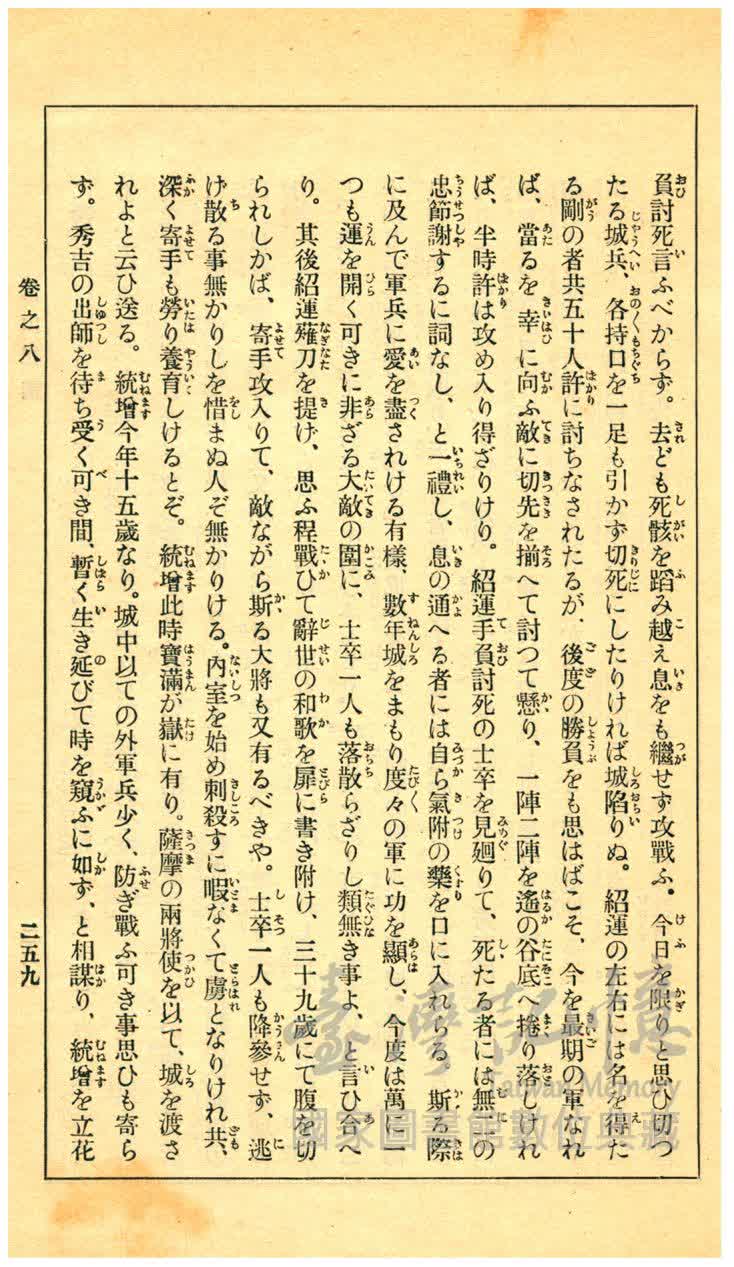 負討死言ふべからず。去ども死骸を蹈み越え息をも繼せず攻戰ふ。今日を限りと思ひ切つ
たる城兵、各持口を一足も引かず切死にしたりければ城陷りぬ。紹運の左右には名を得た
る剛の者共五十人許に討ちなされたるが、後度の勝負をも思はばこそ、今を最期の軍なれ
ば、當るを幸に向ふ敵に切先を揃へて討つて懸り、一陣二陣を遙の谷底へ捲り落しけれ
ば、半時許は攻め入り得ざりけり。紹運手負討死の士卒を見廻りて、死たる者には無二の
忠節謝するに詞なし、と一禮し、息の通へる者には自ら氣附の藥を口に入れらる。斯る際
に及んで軍兵に愛を盡されける有樣、數年城をまもり度々の軍に功を顯し、今度は萬に一
つも運を開く可きに非ざる大敵の圍に、士卒一人も落散らざりし類無き事よ、と言ひ合へ
り。其後紹運薙刀を提げ、思ふ程戰ひて辭世の和歌を扉に書き附け、三十九歲にて腹を切
られしかば、寄手攻入りて、敵ながら斯る大將も又有るべきや。士卒一人も降參せず、逃
げ散る事無かりしを惜まぬ人ぞ無かりける。內室を始め刺殺すに暇なくて虜となりけれ共、
深く寄手も勞り養育しけるとぞ。統增此時寶滿が嶽に有り。薩摩の兩將使を以て、城を渡さ
れよと云ひ送る。統增今年十五歲なり。城中以ての外軍兵少く、防ぎ戰ふ可き事思ひも寄ら
ず。秀吉の出師を待ち受く可き間、暫く生き延びて時を窺ふに如ず、と相謀り、統增を立花
卷之八
二五九
臺灣記憶
Taiwan Memory
國家圖書館數位典藏